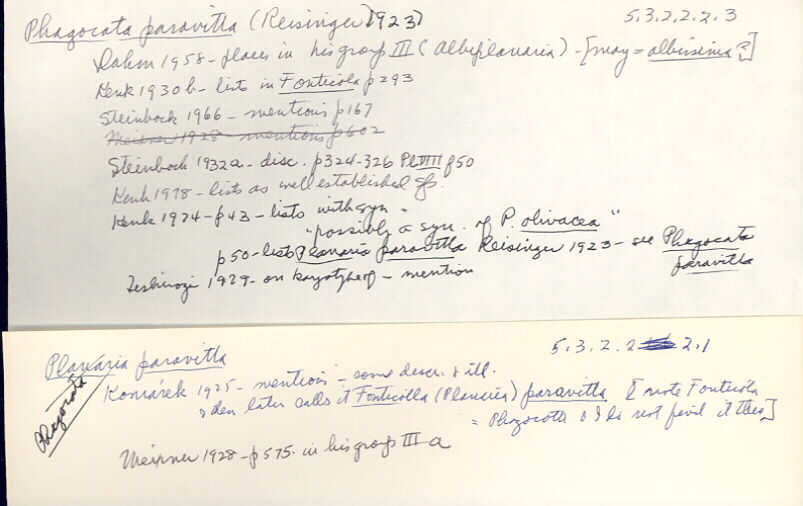 Phagocata paravitta (Reisinger 1923) 5.3.2.2.2.3
Dahm 1958 - places in his group III (Albiplanaria) - [may = albissima?]
Kenk 1930b - lists in Fonticola p 293
Steinbock 1966 - mentions p167
Meixner 1928 - mentions p602
Steinbock 1932a - disc. p324-326 Pl VIII f50
Kenk 1978 - lists as well established sp.
Kenk 1974 - p43 - lists with syn -
"possibly a syn. of P. olivacea"
p50 - lists Planaria paravitta Reisinger 1923 - see Phagocata
paravitta
Teshirozi 1979 - on karyotype - mention
Planaria paravitta 5.3.2.2 2.1
Phagocata
Komárek 1925 - mentions - some descr. & ill.
& then later calls it Fonticolla (Planaria) paravitta [note Fonticola
= Phagocata & I do not find it there]
Meixner 1928 - p575 in his group III-a